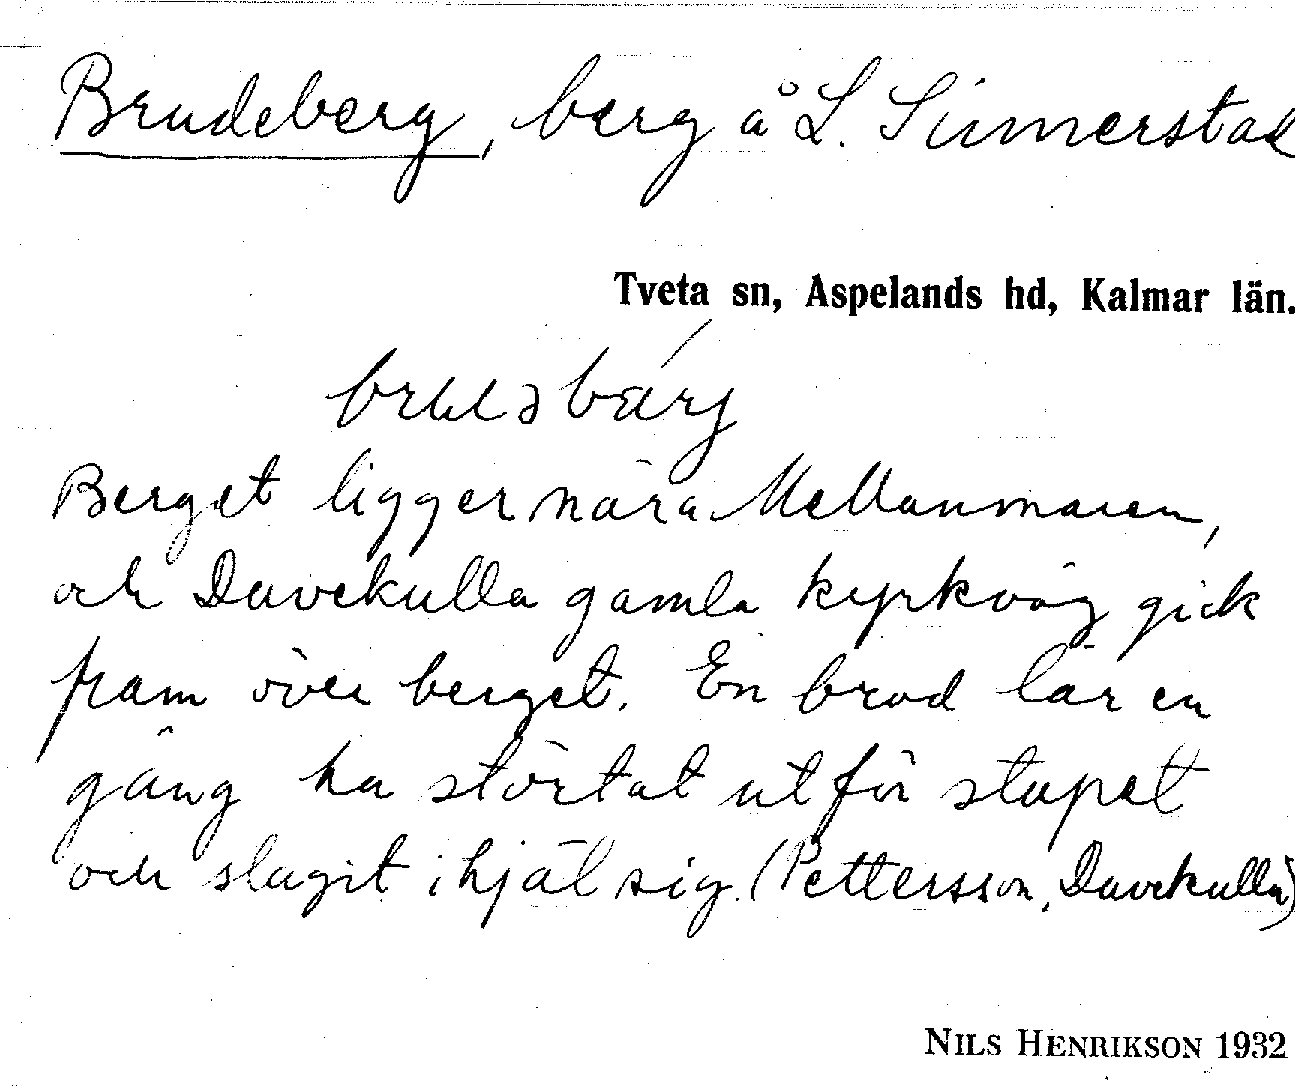 Brudeberg, berg å L. Simmerstad
Tveta sn, Aspelands hd, Kalmar län.
Berget ligger nära Mellanmaren,
och Duvekulla gamla kyrkväg gick
fram över berget. En brud lär en
gång ha störtat utför stupet
och slagit ihjäl sig. (Pettersson, Duvekulla)
NILS HENRIKSON 1932